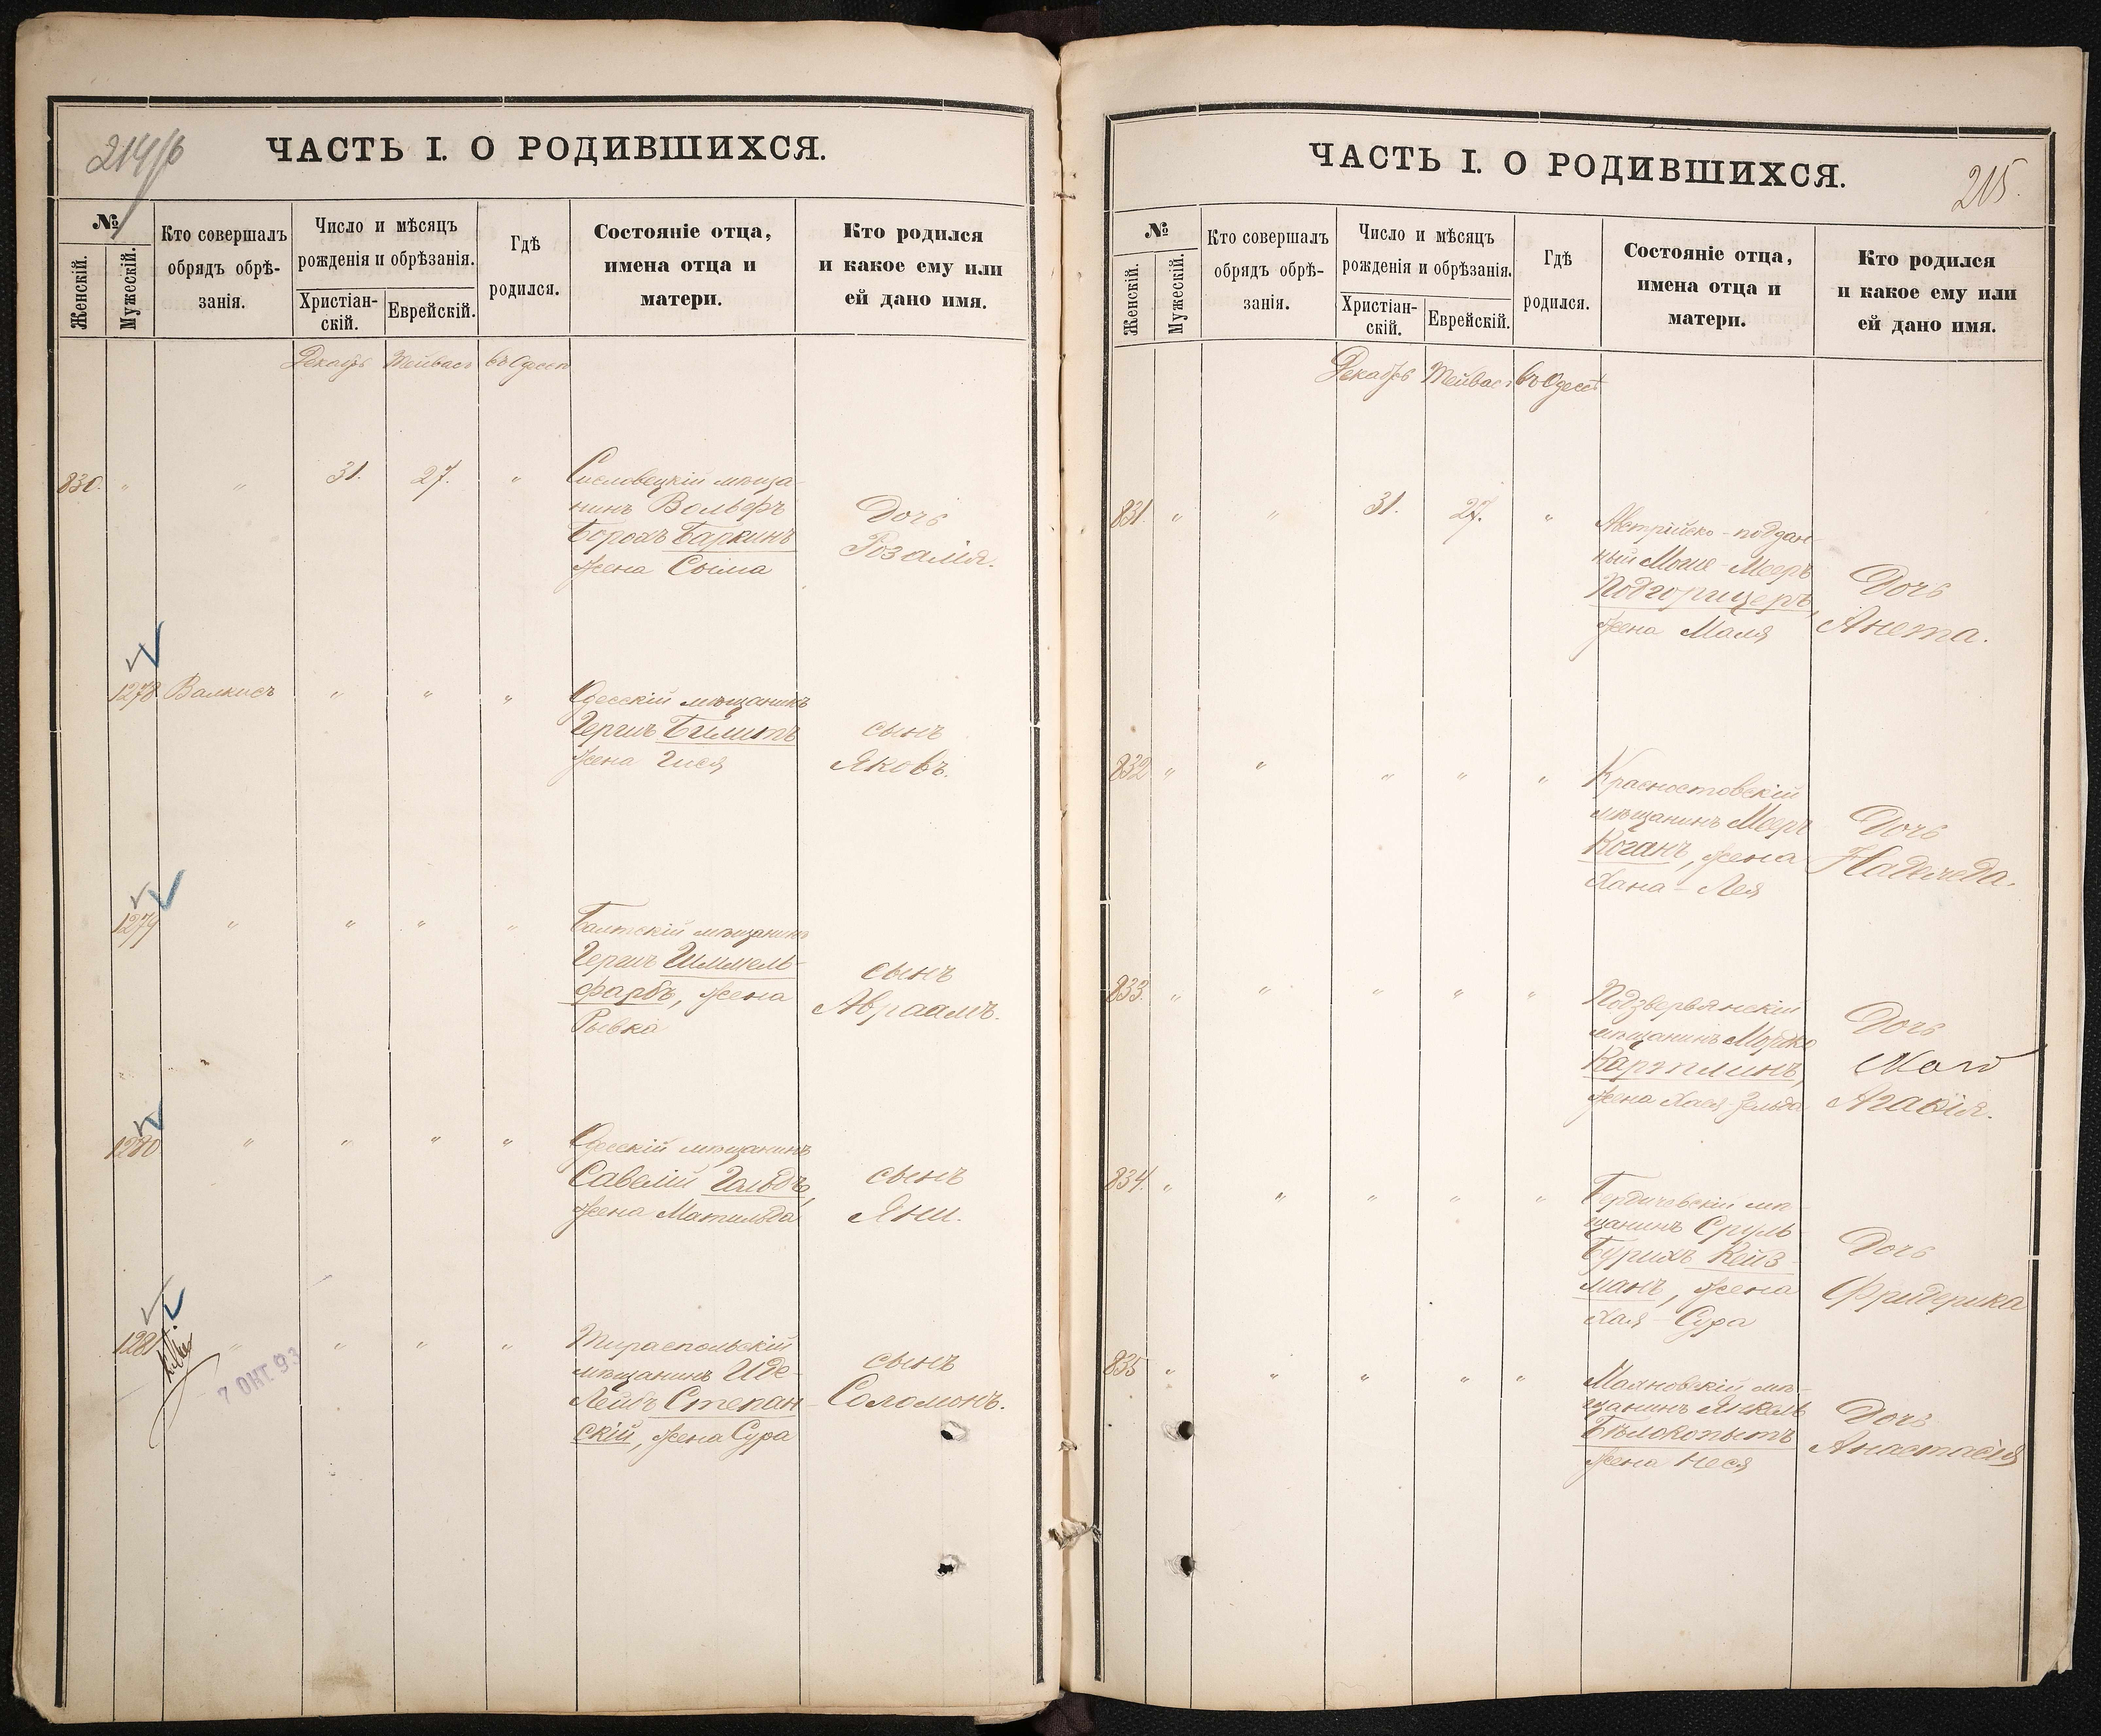 214/б
ЧАСТЬ I. О РОДИВШИХСЯ.
№
Женскій.
Мужескій.
Кто совершалъ
обрядъ обрѣ-
занія.
Число и мѣсяцъ
рожденія и обрѣзанія.
Христіан-
скій.
Еврейскій.
Гдѣ
родился.
Состояніе отца,
имена отца и
матери.
Кто родился
и какое ему или
ей дано имя.
Декабрь Тейвасъ въ Одессѣ
830. " " 31. 27. "
мѣща-
нинъ Вольфъ
Борохъ Баркинъ
жена Сыма
Дочь
Розалія.
1278 Валкисъ " " "
Одесскій мѣщанинъ
Гершъ Билитъ
жена Гися
сынъ
Яковъ.
1279 " " " "
Балтскій мѣщанинъ
Гершъ Шиммель-
фарбъ, жена
Рывка
сынъ
Авраамъ.
1280 " " " "
Одесскій мѣщанинъ
Савелій Гольдъ,
жена Матильда
сынъ
Яни.
1281 " " " "
7 ОКТ 93
Тираспольскій
мѣщанинъ Иде-
Лейбъ Степан-
скій, жена Сура
сынъ
Соломонъ.
215.
ЧАСТЬ I. О РОДИВШИХСЯ.
№
Женскій.
Мужескій.
Кто совершалъ
обрядъ обрѣ-
занія.
Число и мѣсяцъ
рожденія и обрѣзанія.
Христіан-
скій.
Еврейскій.
Гдѣ
родился.
Состояніе отца,
имена отца и
матери.
Кто родился
и какое ему или
ей дано имя.
Декабрь Тейвасъ въ Одессѣ
831. " " 31. 27. "
Австрійско-поддан-
ный Моше-Мееръ
Подгорицеръ,
жена Маля
Дочь
Анета.
832 " " " " "
Красноставскій
мѣщанинъ Мееръ
Коганъ, жена
Хана-Лея
Дочь
Надежда.
833. " " " " "
мѣщанинъ Мордко
жена Хая-Зельда
Дочь
834. " " " " "
Бердичевскій мѣ-
щанинъ Сруль-
Бурихъ Кейз-
манъ, жена
Хая-Сура
Дочь
Фридерика
835 " " " " "
Маяновскій мѣ-
щанинъ Янкель
Бѣлокопытъ
жена Неся
Дочь
Анастасія